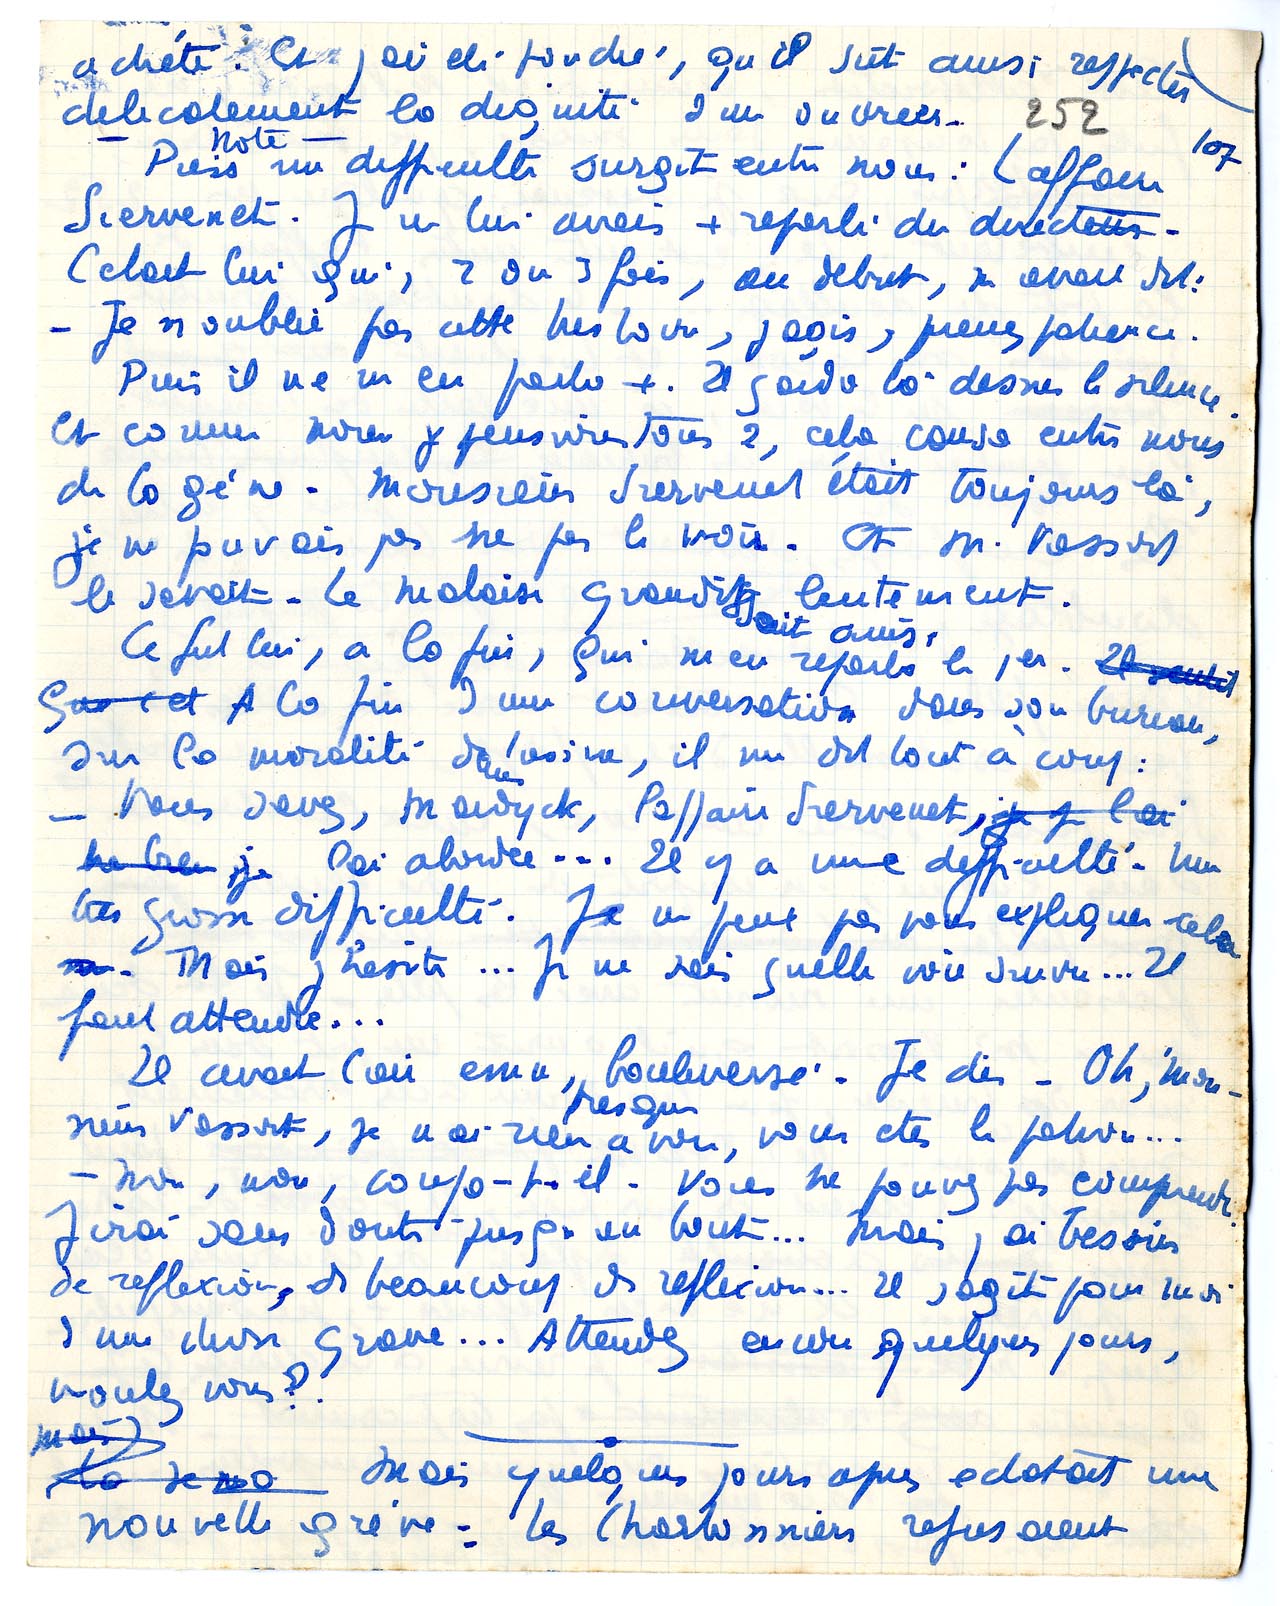 achété. Et j'ai été touché, qu'il sût aussi respecter
délicatement la dignité d'un ouvrier. 252
Note 107
Puis une difficulté surgit entre nous : L'affaire
Servenet. Je ne lui avais + reparlé du directeur.
C'etait lui qui, 2 ou 3 fois, au début, m'avait dit :
– Je n'oublie pas cette histoire, j'agis, prenez patience.
Puis il ne m'en parla +. Il garda là dessus le silence.
Et comme nous y pensions tous 2, cela causa entre nous
de la gêne. Monsieur Servenet était toujours là,
je ne pouvais pas ne pas le voir. Et M. Vassart
le savait. Le malaise grandissait lentement.
Ce fut lui, a la fin, qui m'en reparla le 1er. Il sentit
A la fin d'une conversation dans son bureau,
sur la moralité dans l'usine, il me dit tout à coup :
– Vous savez, Mardyck, l'affaire Servenet, je l'ai
je l'ai abordée... Il y a une difficulté. Une
très grosse difficulté. Je ne peux pas vous expliquer cela
Mais j'hésite... Je ne sais quelle voie suivre... Il
faut attendre...
Il avait l'air ému, presque bouleversé. Je dis – Oh, mon-
sieur Vassart, je n'ai rien a voir, vous etes le patron...
– Non, non, coupa-t-il. Vous ne pouvez pas comprendre.
J'irai sans doute jusqu'au bout... Mais j'ai besoin
de reflexion, de beaucoup de reflexion... Il s'agit pour moi
d'une chose grave... Attendez encore quelques jours,
voulez vous ?
mais
Mais quelques jours apres eclatait une
nouvelle grève : les Charbonniers refusaient